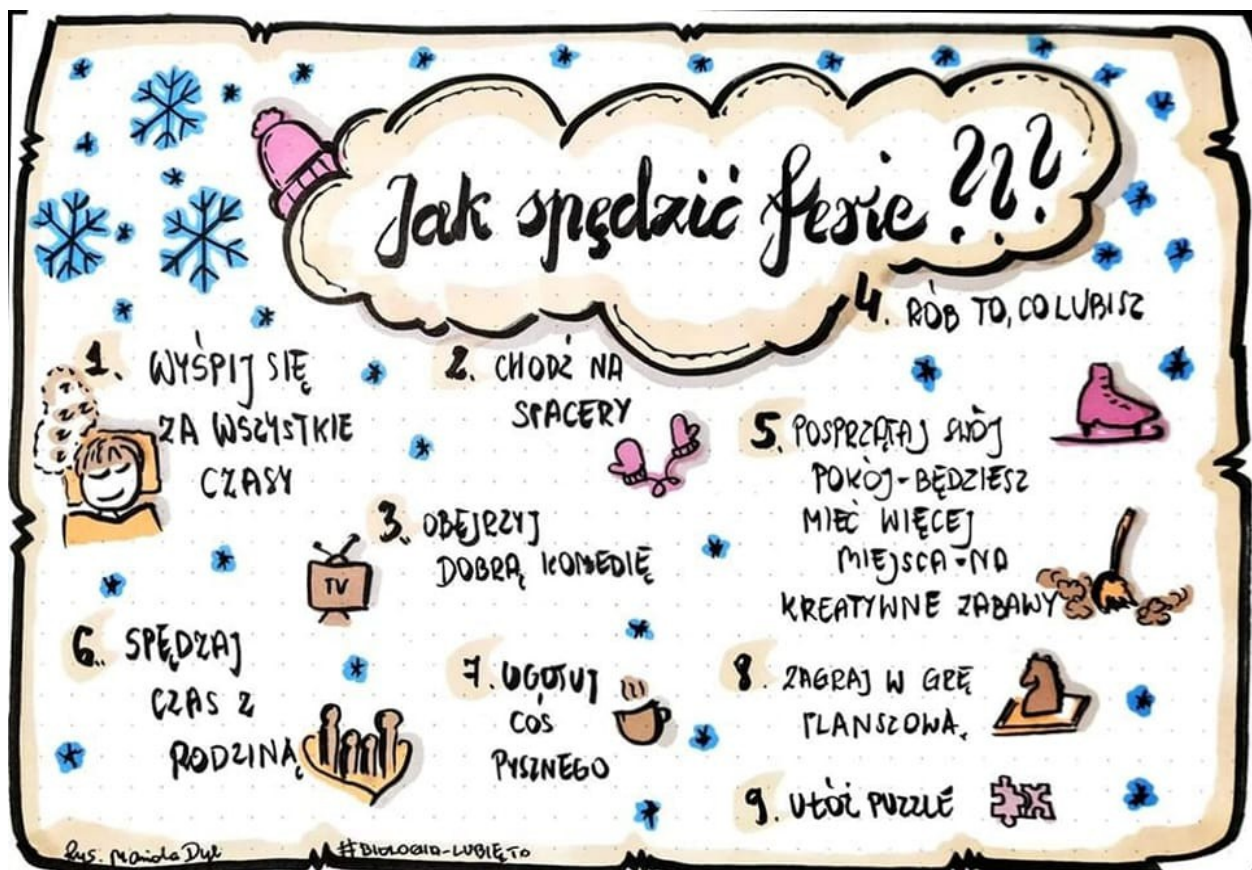 Jak spędzić ferie???
1. WYŚPIJ SIĘ
ZA WSZYSTKIE
CZASY
2. CHODŹ NA
SPACERY
3. OBEJRZYJ
DOBRĄ KOMEDIĘ
TV
4. RÓB TO, CO LUBISZ
5. POSPRZĄTAJ SWÓJ
POKÓJ-BĘDZIESZ
MIEĆ WIĘCEJ
MIEJSCA-NA
KREATYWNE ZABAWY
6. SPĘDZAJ
CZAS Z
RODZINĄ
7. UGOTUJ
COŚ
PYSZNEGO
8. ZAGRAJ W GRĘ
PLANSZOWĄ
9. UŁÓŻ PUZZLE
Rys. Mariola Dyl
#BIOLOGIA-LUBIĘTO